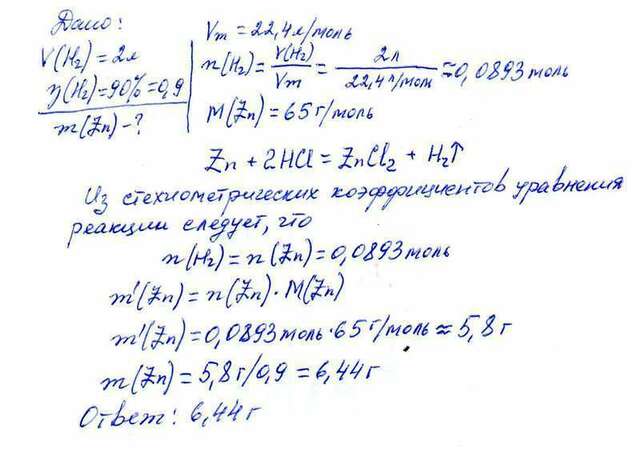 Дано:
V(H₂)=2л
η(H₂)=90%=0,9
m(Zn)-?
Vm=22,4л/моль
n(H₂)=V(H₂)/Vm=2л/22,4л/моль≈0,0893моль
M(Zn)=65г/моль
Zn+2HCl=ZnCl₂+H₂↑
Из стехиометрических коэффициентов уравнения
реакции следует, что
n(H₂)=n(Zn)=0,0893моль
m'(Zn)=n(Zn)·M(Zn)
m'(Zn)=0,0893моль·65г/моль≈5,8г
m(Zn)=5,8г/0,9=6,44г
Ответ: 6,44г